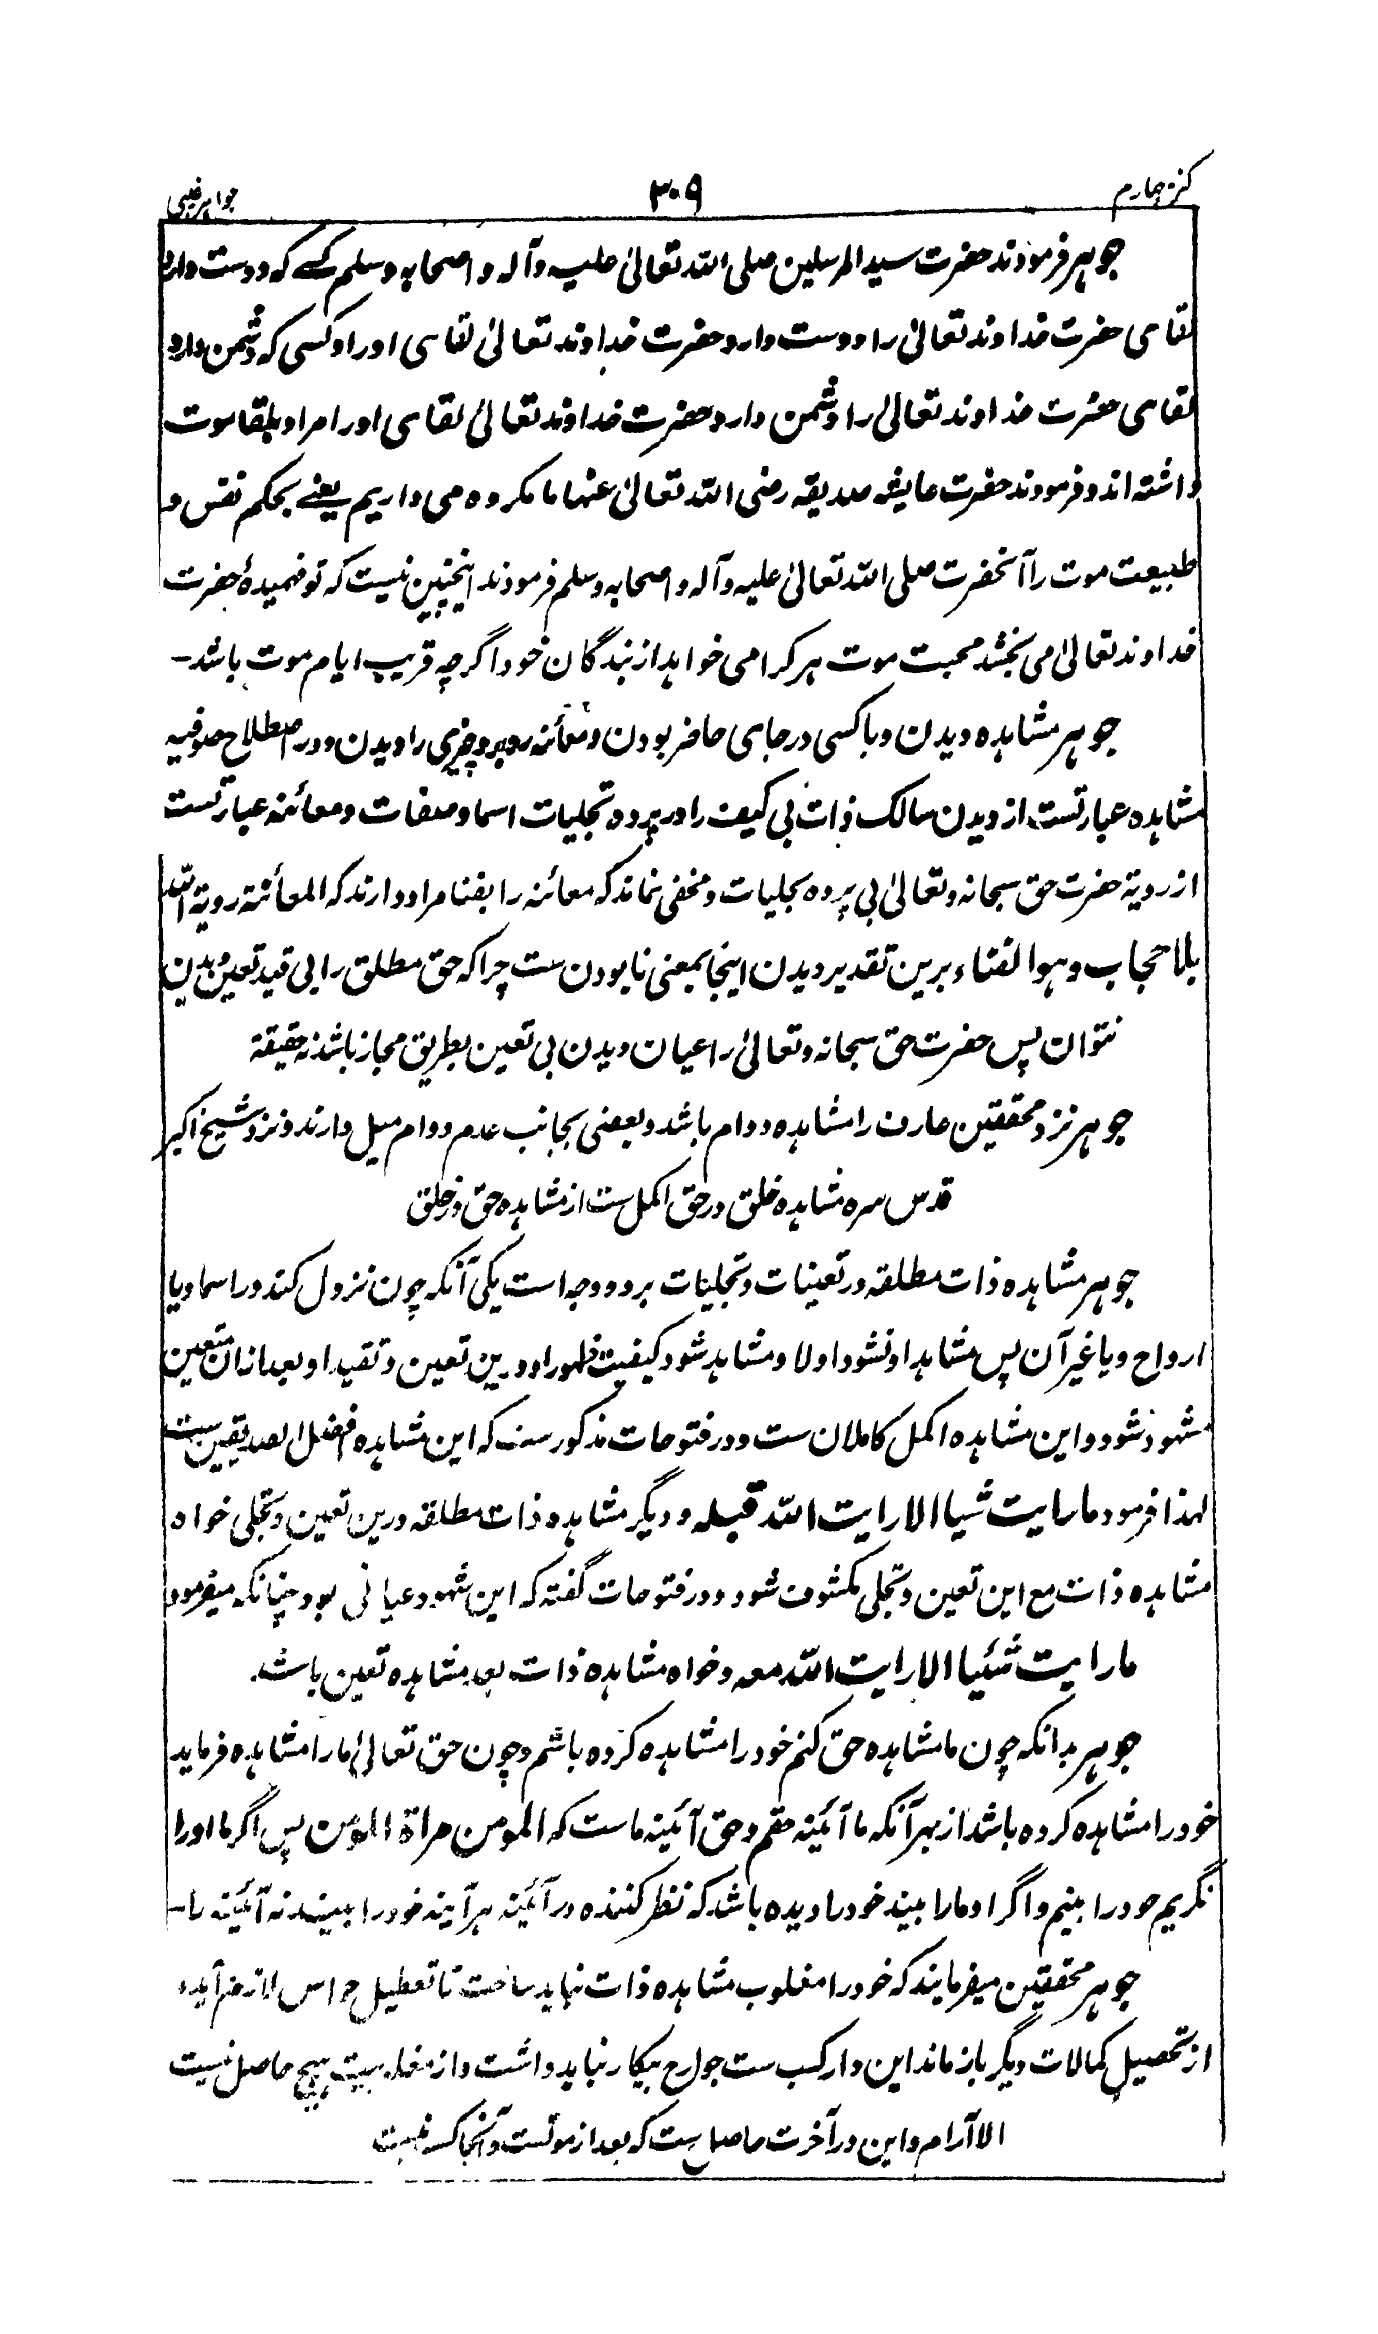 کنز چهارم
۳۰۹
جواهر غیبی
جوهر فرمودند حضرت سید المرسلین صلی الله تعالیٰ علیه وآله و اصحابه وسلم کسے که دوست دارد
لقای حضرت خداوند تعالیٰ را دوست دارد حضرت خداوند تعالیٰ لقای اورا و کسی که دشمن دارد
لقای حضرت خداوند تعالیٰ را دشمن دارد حضرت خداوند تعالیٰ لقای اورا مراد بلقا موت
داشته اند و فرمودند حضرت عایشه صدیقه رضی الله تعالیٰ عنها ما مکروه می داریم یعنے بحکم نفس و
طبیعت موت را آنحضرت صلی الله تعالیٰ علیه وآله و اصحابه وسلم فرمودند اینچنین نیست که تو فهمیدهٔ حضرت
خداوند تعالیٰ می بخشد محبت موت هر کرا می خواهد از بندگان خود اگرچه قریب ایام موت باشد۔
جوهر مشاهده دیدن و با کسی در جای حاضر بودن و معائنه روبرو چیزی را دیدن و در اصطلاح صوفیه
مشاهده عبارتست از دیدن سالک ذات بی کیف را در پرده تجلیات اسما و صفات و معائنه عبارتست
از رویة حضرت حق سبحانه وتعالیٰ بی پرده تجلیات و مخفی نماند که معائنه را بفنا مراد دارند که المعائنة رویة الله
بلا حجاب وهو الفناء برین تقدیر دیدن اینجا بمعنی نابودن ست چرا که حق مطلق را بی قید تعین دیدن
نتوان پس حضرت حق سبحانه وتعالیٰ را عیان دیدن بی تعین بطریق مجاز باشد نه حقیقة
جوهر نزد محققین عارف را مشاهده دوام باشد و بعضی بجانب عدم دوام میل دارند و نزد شیخ اکبر
قدس سره مشاهده خلق در حق اکمل ست از مشاهده حق در خلق
جوهر مشاهده ذات مطلقه در تعینات و تجلیات بر دو وجه است یکی آنکه چون نزول کند در اسما و یا
ارواح و یا غیر آن پس مشاهد او نشود اولا و مشاهد شود کیفیت ظهور او درین تعین و تقید او بعد ازان متعین
مشهود شود و این مشاهده اکمل کاملان ست و در فتوحات مذکور ست که این مشاهده افضل الصدیقین ست
لهذا فرمود ما رایت شیا الا رایت الله قبله و دیگر مشاهده ذات مطلقه درین تعین و تجلی خواه
مشاهده ذات مع این تعین و تجلی مکشوف شود و در فتوحات گفته که این شهود عیانی بود چنانکه میفرمود
ما رایت شئیا الا رایت الله معه و خواه مشاهده ذات بعد مشاهده تعین باشد.
جوهر بدانکه چون ما مشاهده حق کنم خود را مشاهده کرده باشم و چون حق تعالیٰ ما را مشاهده فرماید
خود را مشاهده کرده باشد از بهر آنکه ما آئینه حقم و حق آئینه ماست که المومن مراة المومن پس اگر ما او را
نگریم خود را بینیم و اگر او ما را بیند خود را دیده باشد که نظر کننده در آئینه هر آینه خود را بیند نه آئینه را۔
جوهر محققین میفرمایند که خود را مغلوب مشاهده ذات نباید ساخت تا تعطیل حواس لازم آید و
از تحصیل کمالات دیگر باز ماند این دار کسب ست جوارح بیکار نباید داشت و از مغلوبیت هیچ حاصل نیست
الا آرام و این در آخرت حاصل ست که بعد از موتست و آنجا کسب نیست